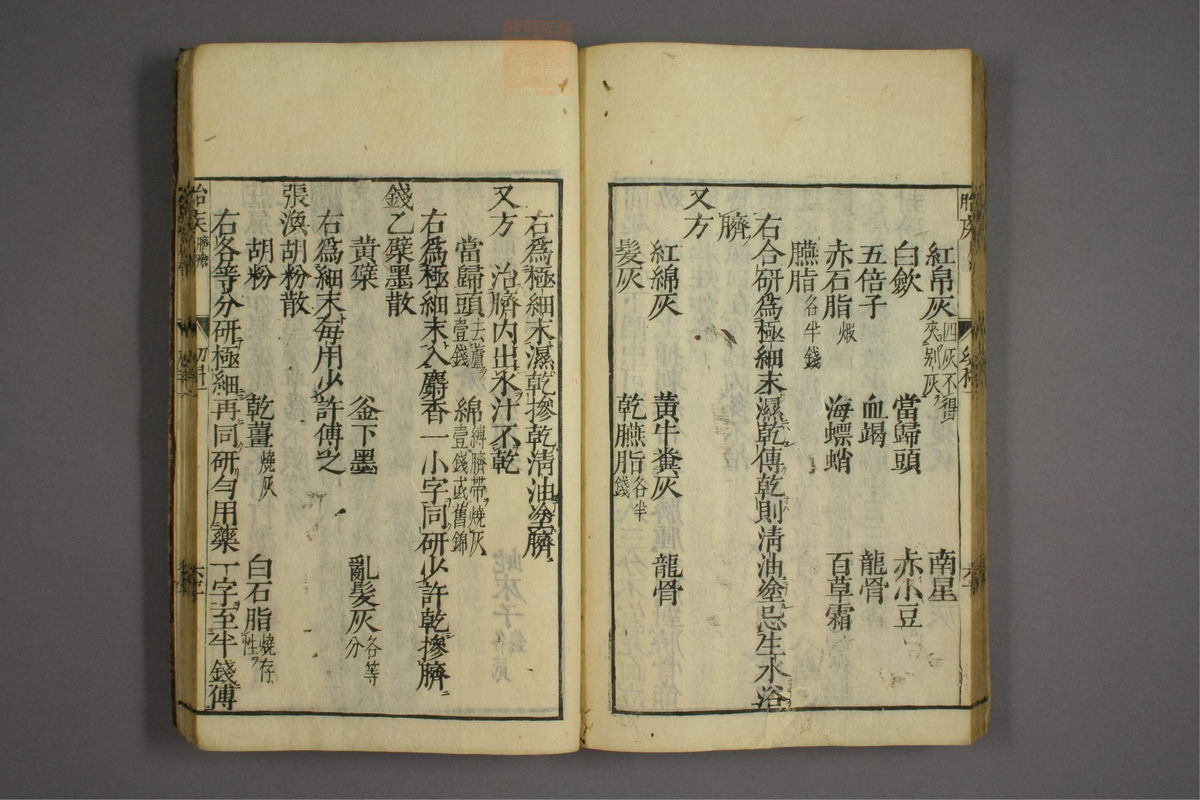 紅帛灰四灰不得夾別灰　當歸頭　南星
白歛　當歸頭　赤小豆
五倍子　血竭　龍骨
赤石脂煅　海螵蛸　百草霜
臙脂各半錢
右合研爲極細末濕乾傅乾則清油塗忌生水浴
臍
又方
紅綿灰　黃牛糞灰　龍骨
髮灰　乾臙脂各半錢
右爲極細末濕乾摻乾清油塗臍
又方　治臍内出水汁不乾
當歸頭去蘆壹錢　綿縛臍帶燒灰壹錢或舊錦
右爲極細末入麝香一小字同研少許乾摻臍
錢乙蘗墨散
黃蘗　釜下墨　亂髮灰各等分
右爲細末每用少許傅之
張渙胡粉散
胡粉　乾薑燒灰　白石脂燒存性
右各等分研極細再同研勻用藥一字至半錢傅